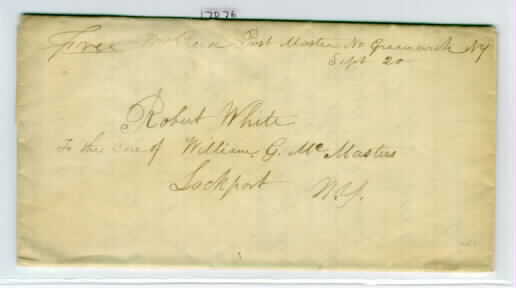 17076
Free Post Master No Greenwich NY
Sept 20
Robert White
To the care of William G. Mc Masters
Lockport N.Y.